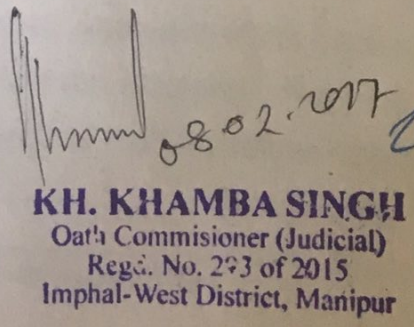 08.02.2017
KH. KHAMBA SINGH
Oath Commisioner (Judicial)
Regd. No. 293 of 2015
Imphal-West District, Manipur